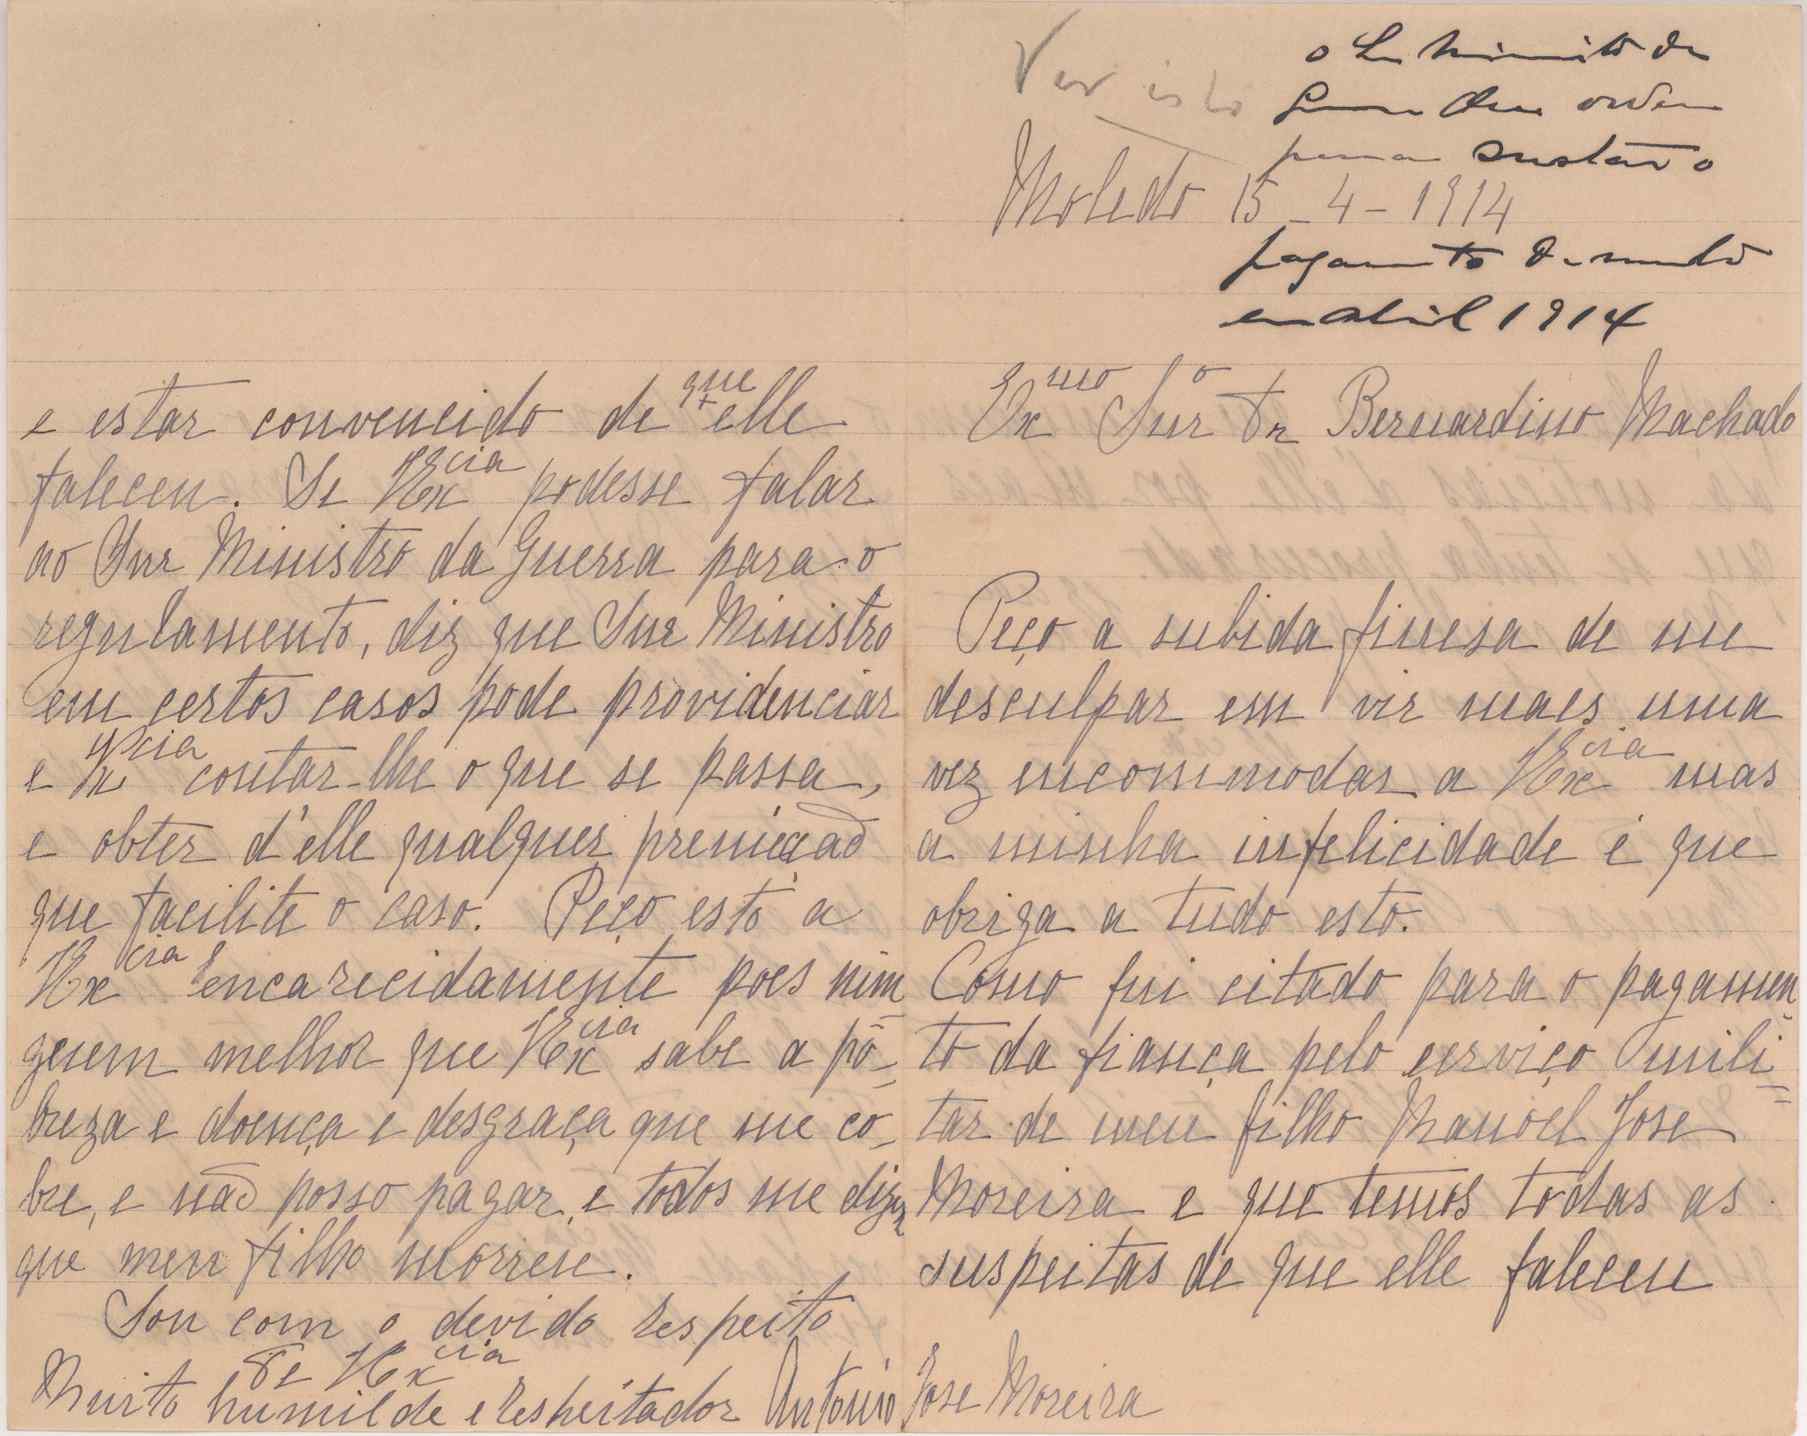 Ver isto
o Sr Ministro da
Guerra deu ordem
para sustar o
Moledo 15-4-1914
pagamento da multa
em abril 1914
Exmo Snr Dr Bernardino Machado
Peço a subida finesa de me
desculpar em vir maes uma
vez encommodar a VExcia mas
a minha infelicidade é que
obriga a tudo esto.
Como fui citado para o pagamen
to da fiança pelo serviço mili=
tar de meu filho Manoel Jose
Moreira e que temos todas as
suspeitas de que elle faleceu
e estar convencido de que elle
faleceu. Se VExcia podesse falar
ao Snr Ministro da Guerra para o
regulamento, diz que Snr Ministro
em certos casos pode providenciar
e VExcia contar-lhe o que se passa,
e obter d'elle qualquer
que facilite o caso. Peço esto a
VExcia encarecidamente poes nim
guem melhor que VExcia sabe a pó=
breza e doença e desgraça que me co-
bre, e não posso pagar, e todos me dizem
que meu filho morreu.
Sou com o devido respeito
De VExcia
Muito humilde e respeitador Antonio Jose Moreira